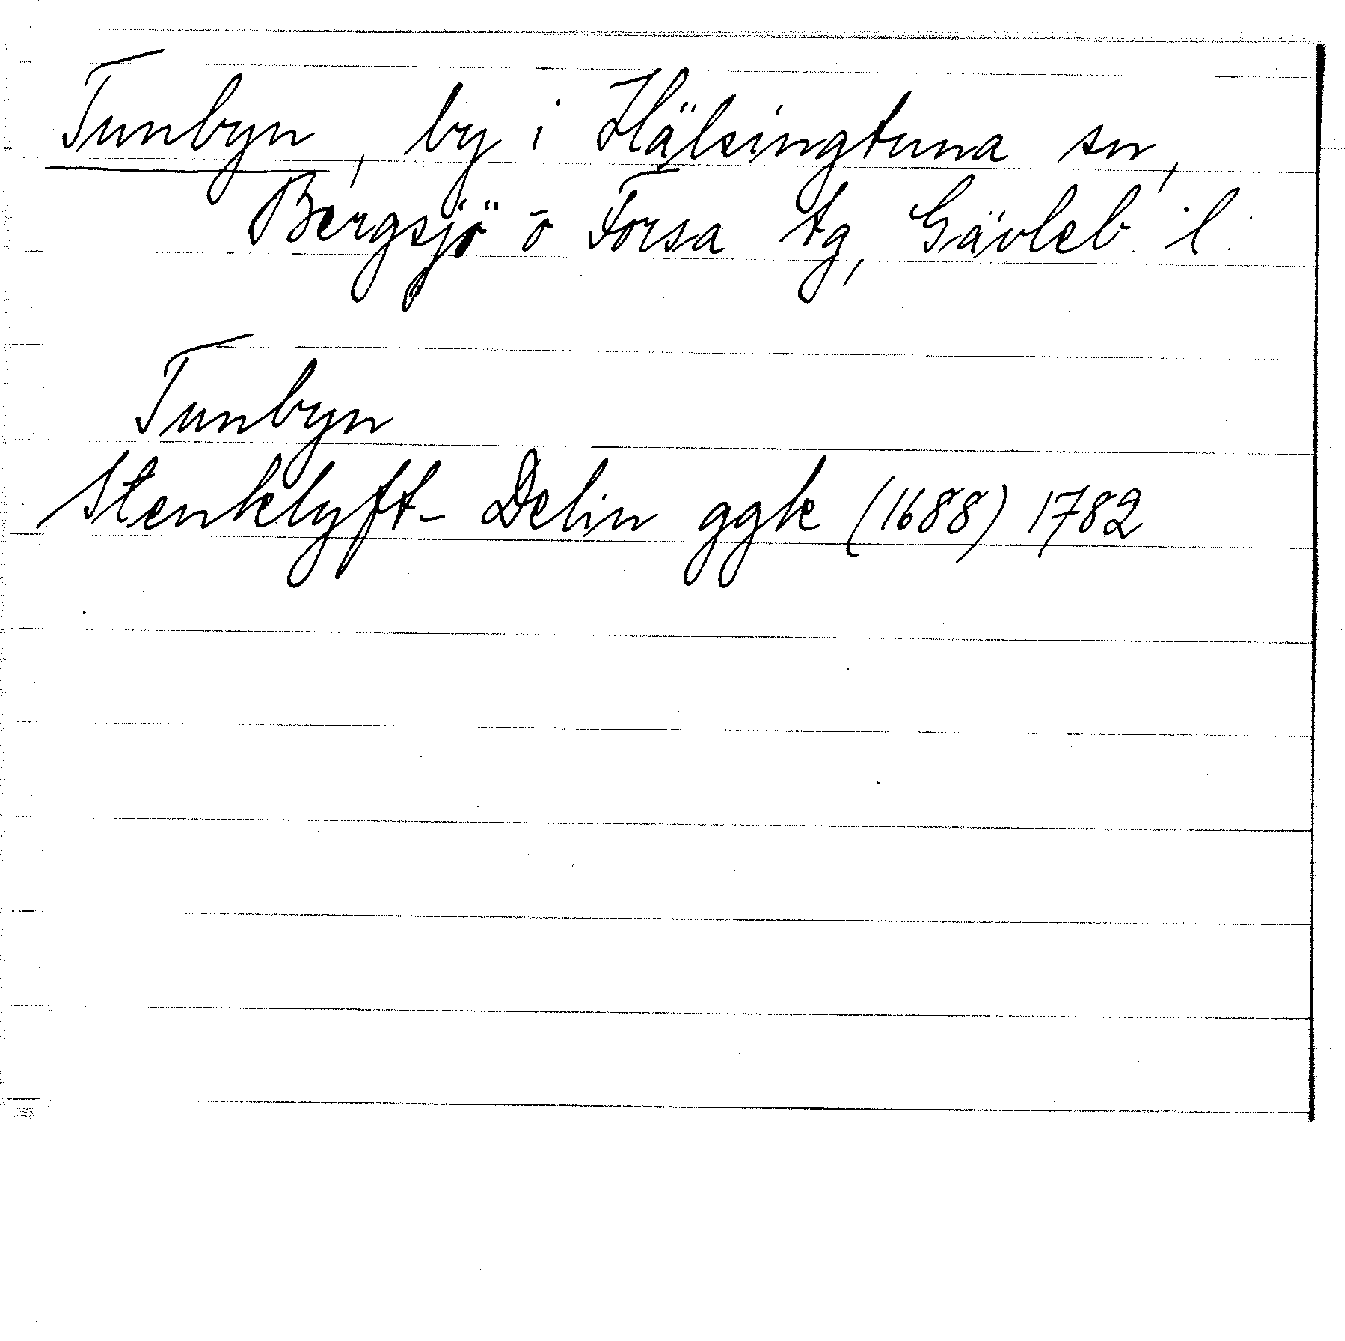 Tunbyn, by i Hälsingtuna sn,
Bergsjö o Forsa tg, Gävleb. l.
Tunbyn
Stenklyft- Delin ggk (1688) 1782